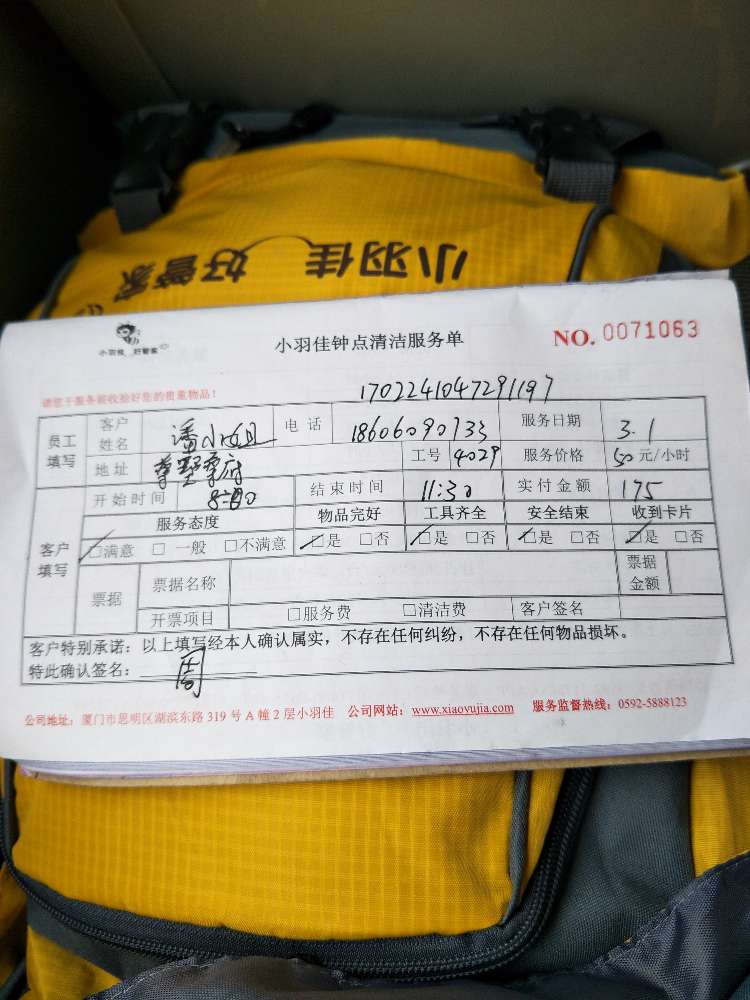 小羽佳 好管家
小羽佳 好管家
小羽佳钟点清洁服务单
NO. 0071063
请您于服务前收捡好您的贵重物品!
1702241047291197
员工填写 客户姓名 潘小姐 电话 18606090733 服务日期 3.1
地址 工号 4029 服务价格 50 元/小时
开始时间 8:00 结束时间 11:30 实付金额 175
客户填写 服务态度 物品完好 工具齐全 安全结束 收到卡片
□满意 □一般 □不满意 □是 □否 □是 □否 □是 □否 □是 □否
票据 票据名称 票据金额
开票项目 □服务费 □清洁费 客户签名
客户特别承诺:以上填写经本人确认属实,不存在任何纠纷,不存在任何物品损坏。
特此确认签名: 周
公司地址:厦门市思明区湖滨东路 319 号 A 幢 2 层小羽佳 公司网站:www.xiaoyujia.com 服务监督热线:0592-5888123